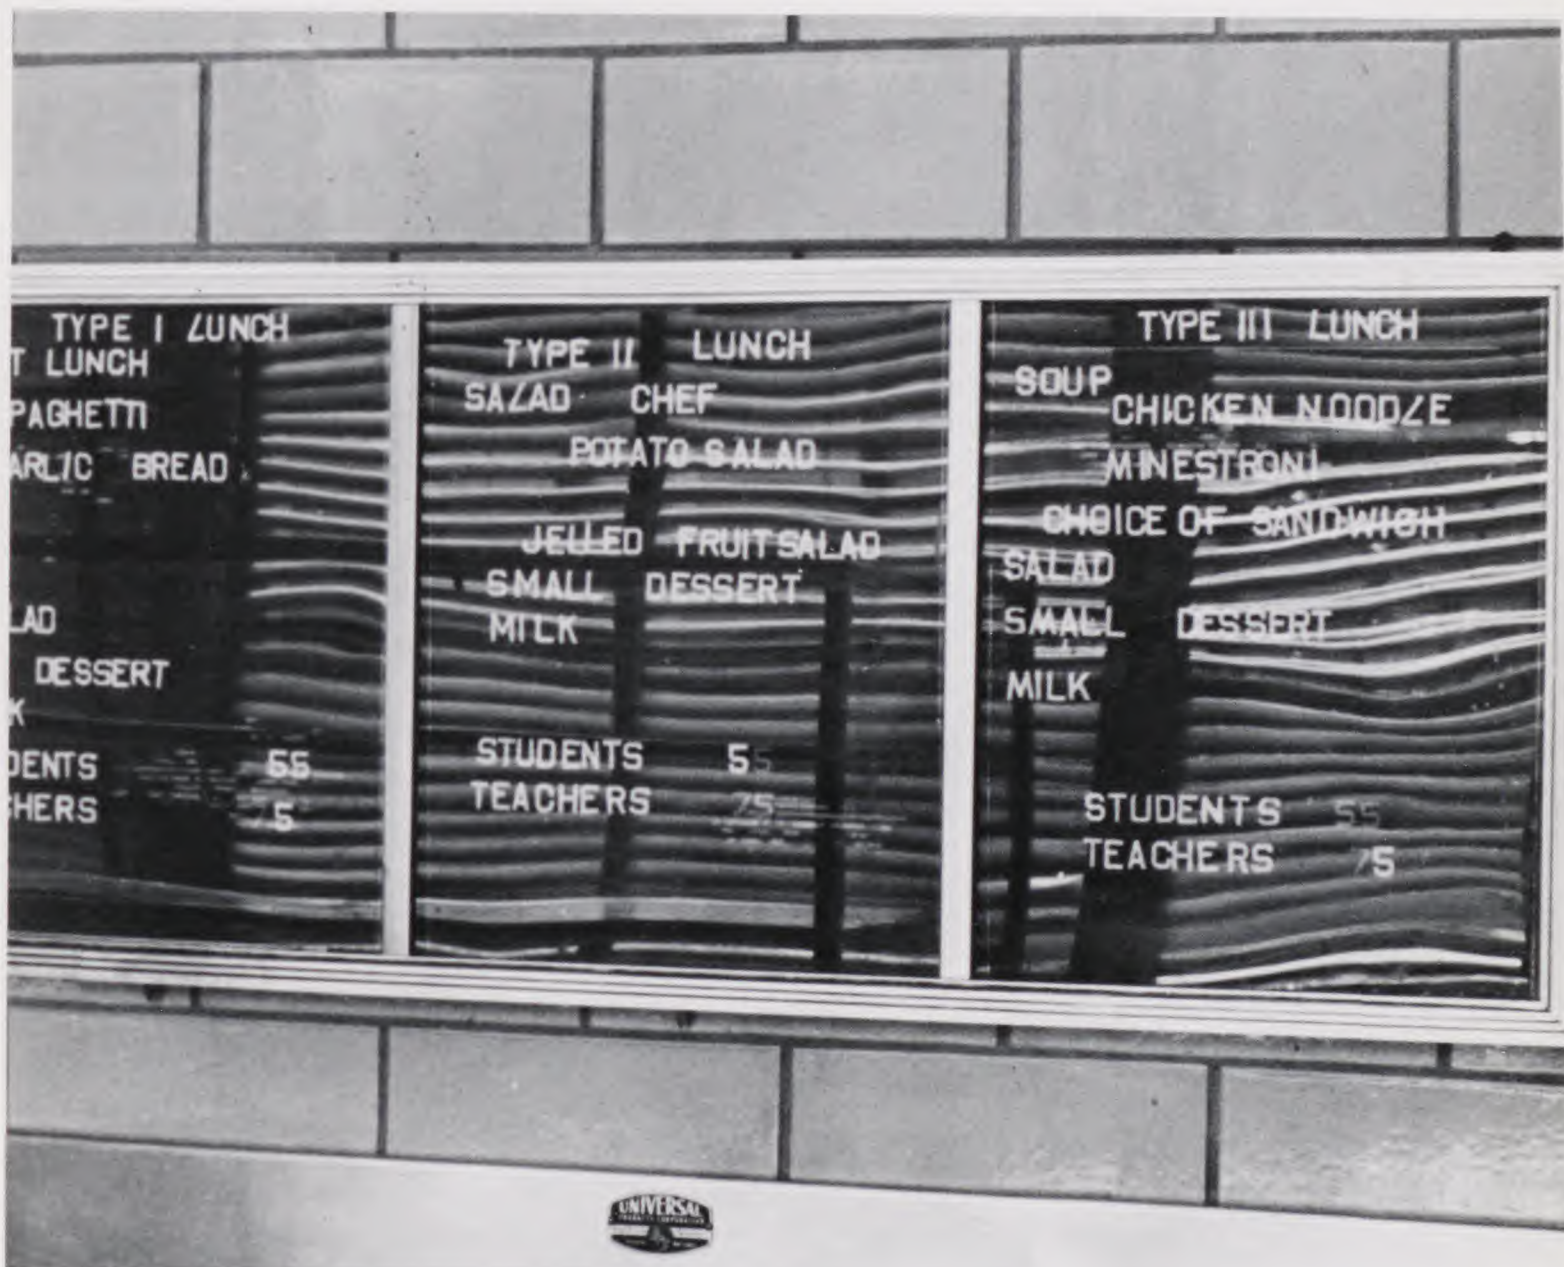 TYPE I LUNCH
T LUNCH
PAGHETTI
ARLIC BREAD
LAD
DESSERT
K
DENTS 55
CHERS 75
TYPE II LUNCH
SALAD CHEF
POTATO SALAD
JELLED FRUIT SALAD
SMALL DESSERT
MILK
STUDENTS 55
TEACHERS 75
TYPE III LUNCH
SOUP
CHICKEN NOODLE
MINESTRONI
CHOICE OF SANDWICH
SALAD
SMALL DESSERT
MILK
STUDENTS 55
TEACHERS 75
UNIVERSAL